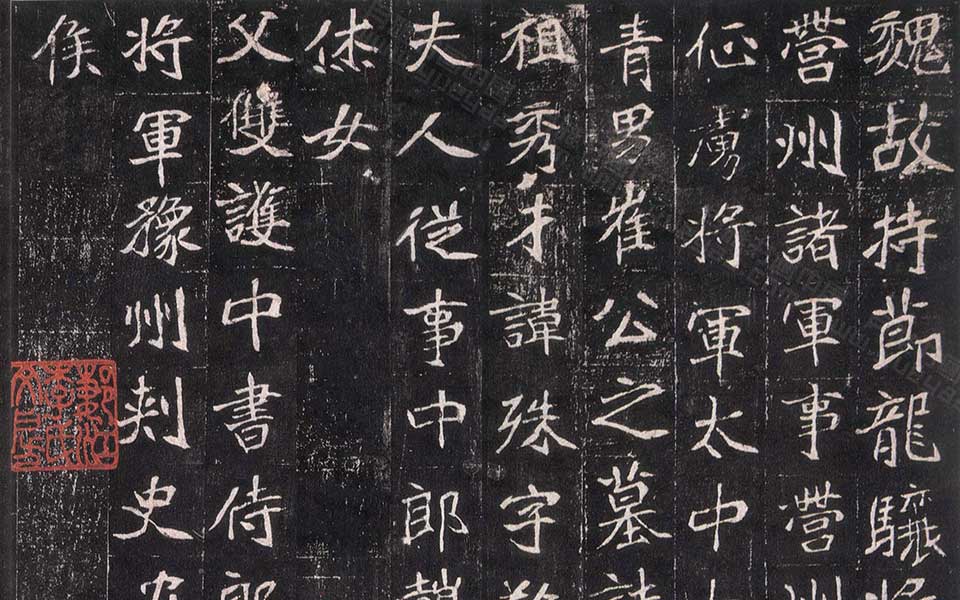 魏故持節龍驤將
營州諸軍事營州
征虜將軍太中
青男崔公之墓誌
祖秀才諱殊字敬
夫人從事中郎趙
烋女
父雙護中書侍郎
將軍豫州刺史安
侯